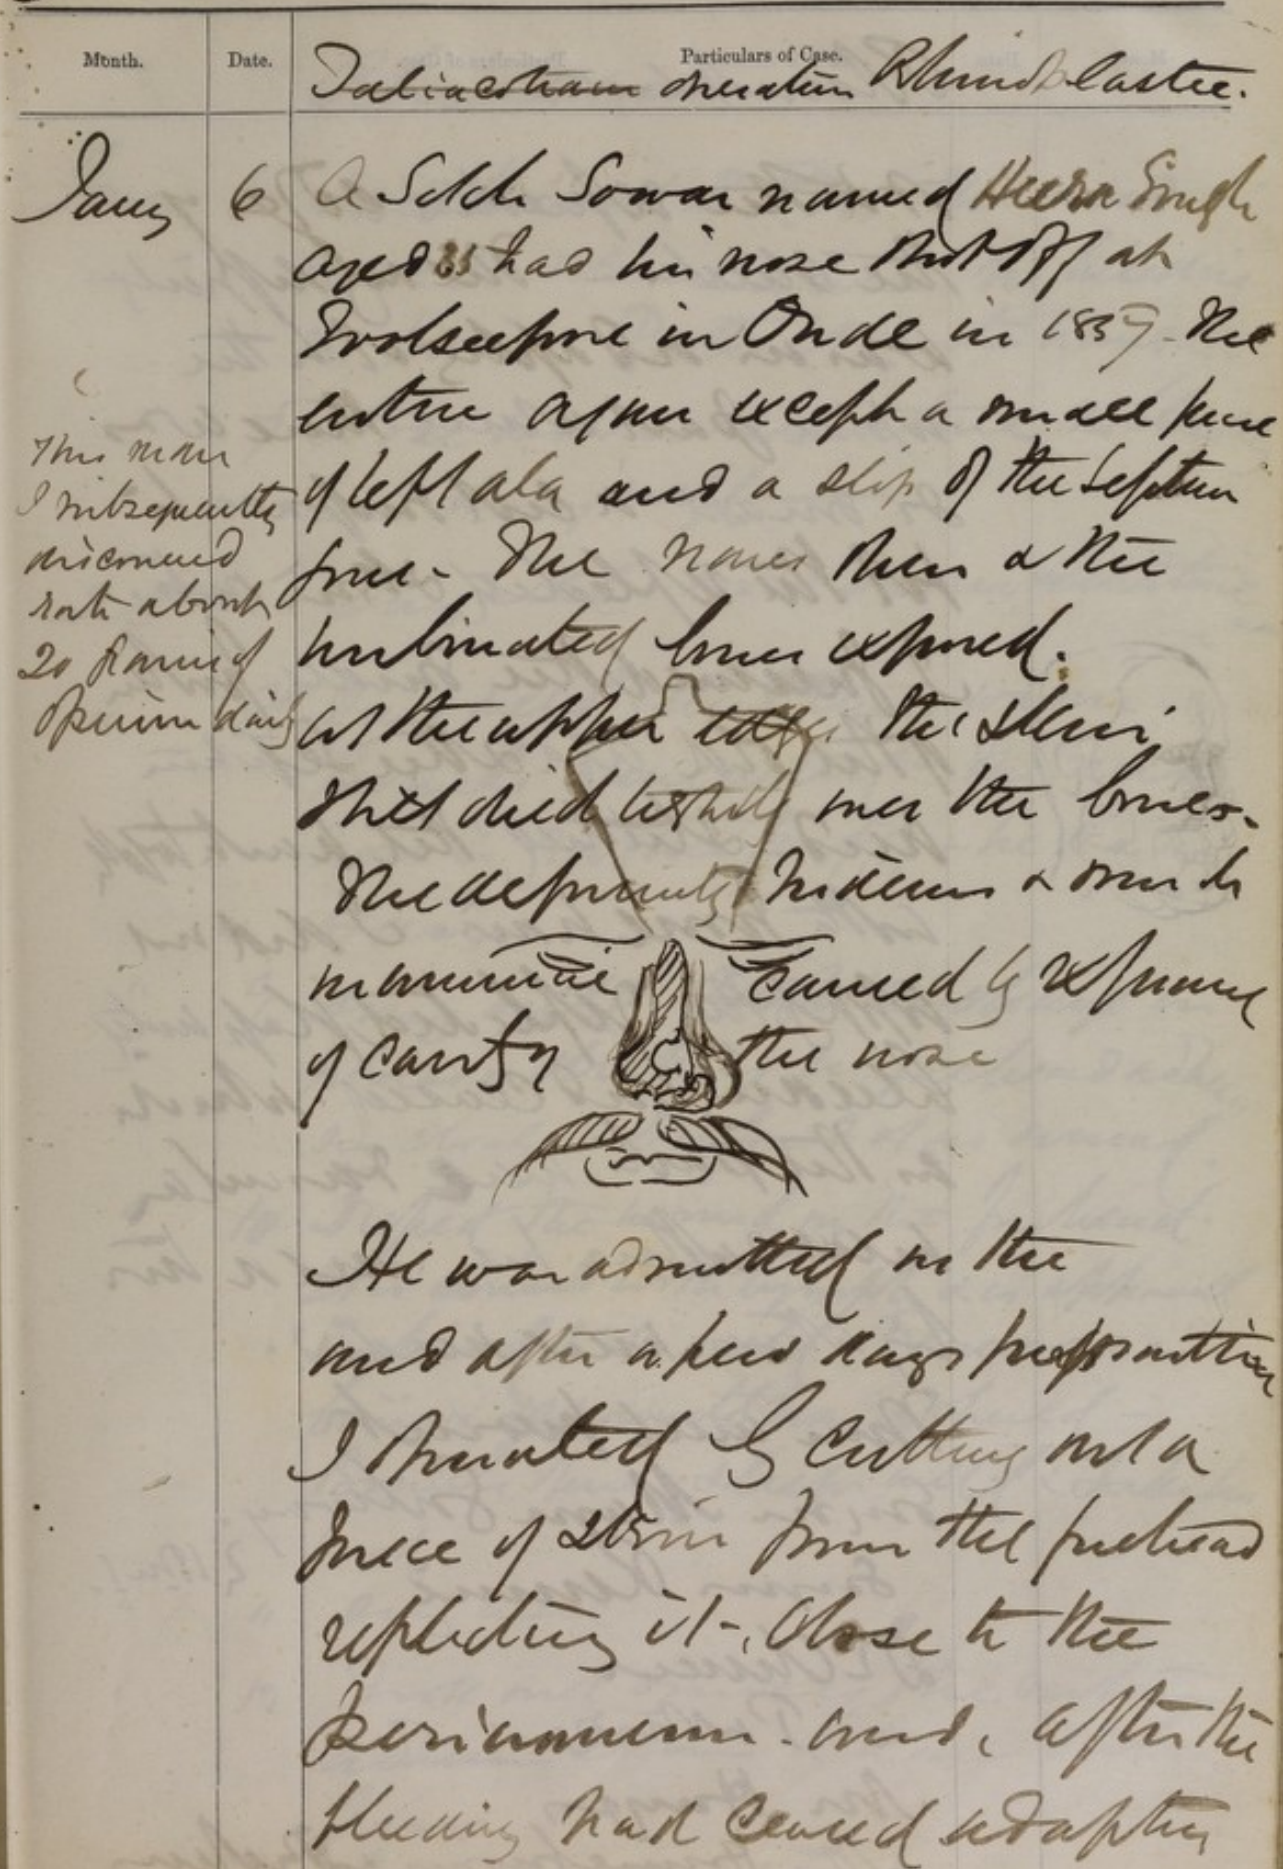 Month. Date. Particulars of Case.
Taliacotian operation Rhinoplastic.
Jany 6 A Seikh Sowar named Heera Singh
aged 35 had his nose shot off at
in Oude in 1857. The
entire organ except a small piece
of left ala and a slip of the septum
gone. The nares then & the
turbinated bones exposed.
At the upper edge the skin
tightly over the bones.
The deformity hideous & much
caused by exposure
of cavity of the nose
This man
I subsequently
discovered
eats about
20 grains of
opium daily
He was admitted on the
and after a few days preparation
I operated by cutting out a
piece of skin from the forehead
reflecting it close to the
pericranium. and, after the
bleeding had ceased adapting